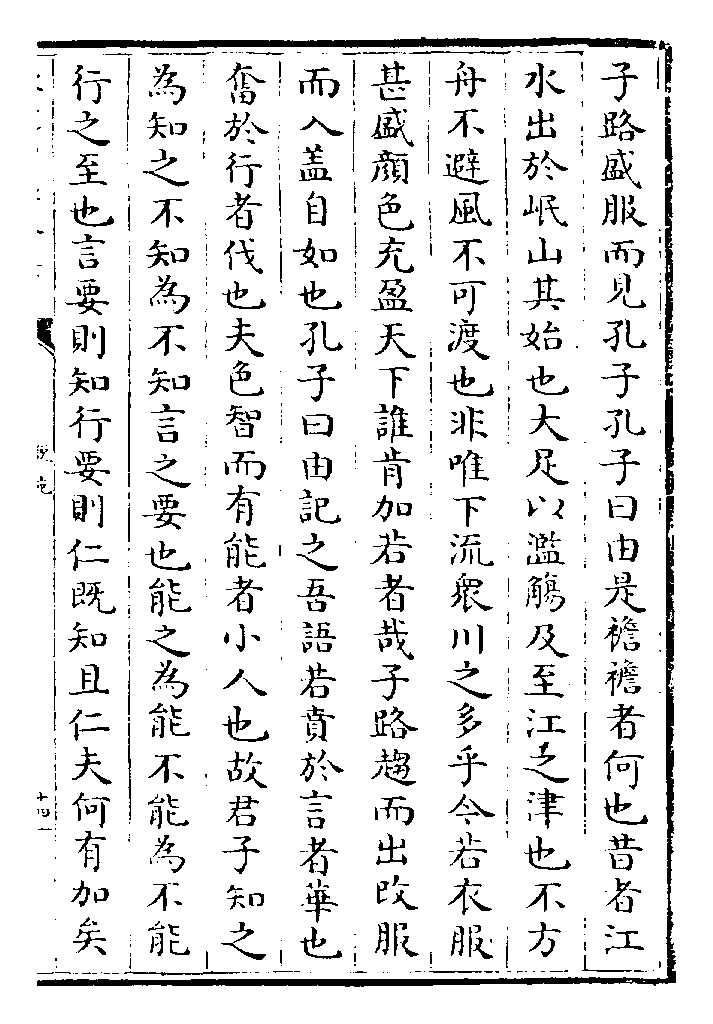 子路盛服而見孔子孔子曰由是襜襜者何也昔者江
水出於岷山其始也大足以濫觴及至江之津也不方
舟不避風不可渡也非唯下流衆川之多乎今若衣服
甚盛顔色充盈天下誰肯加若者哉子路趨而出改服
而入盖自如也孔子曰由記之吾語若賁於言者華也
奮於行者伐也夫色智而有能者小人也故君子知之
為知之不知為不知言之要也能之為能不能為不能
行之至也言要則知行要則仁既知且仁夫何有加矣